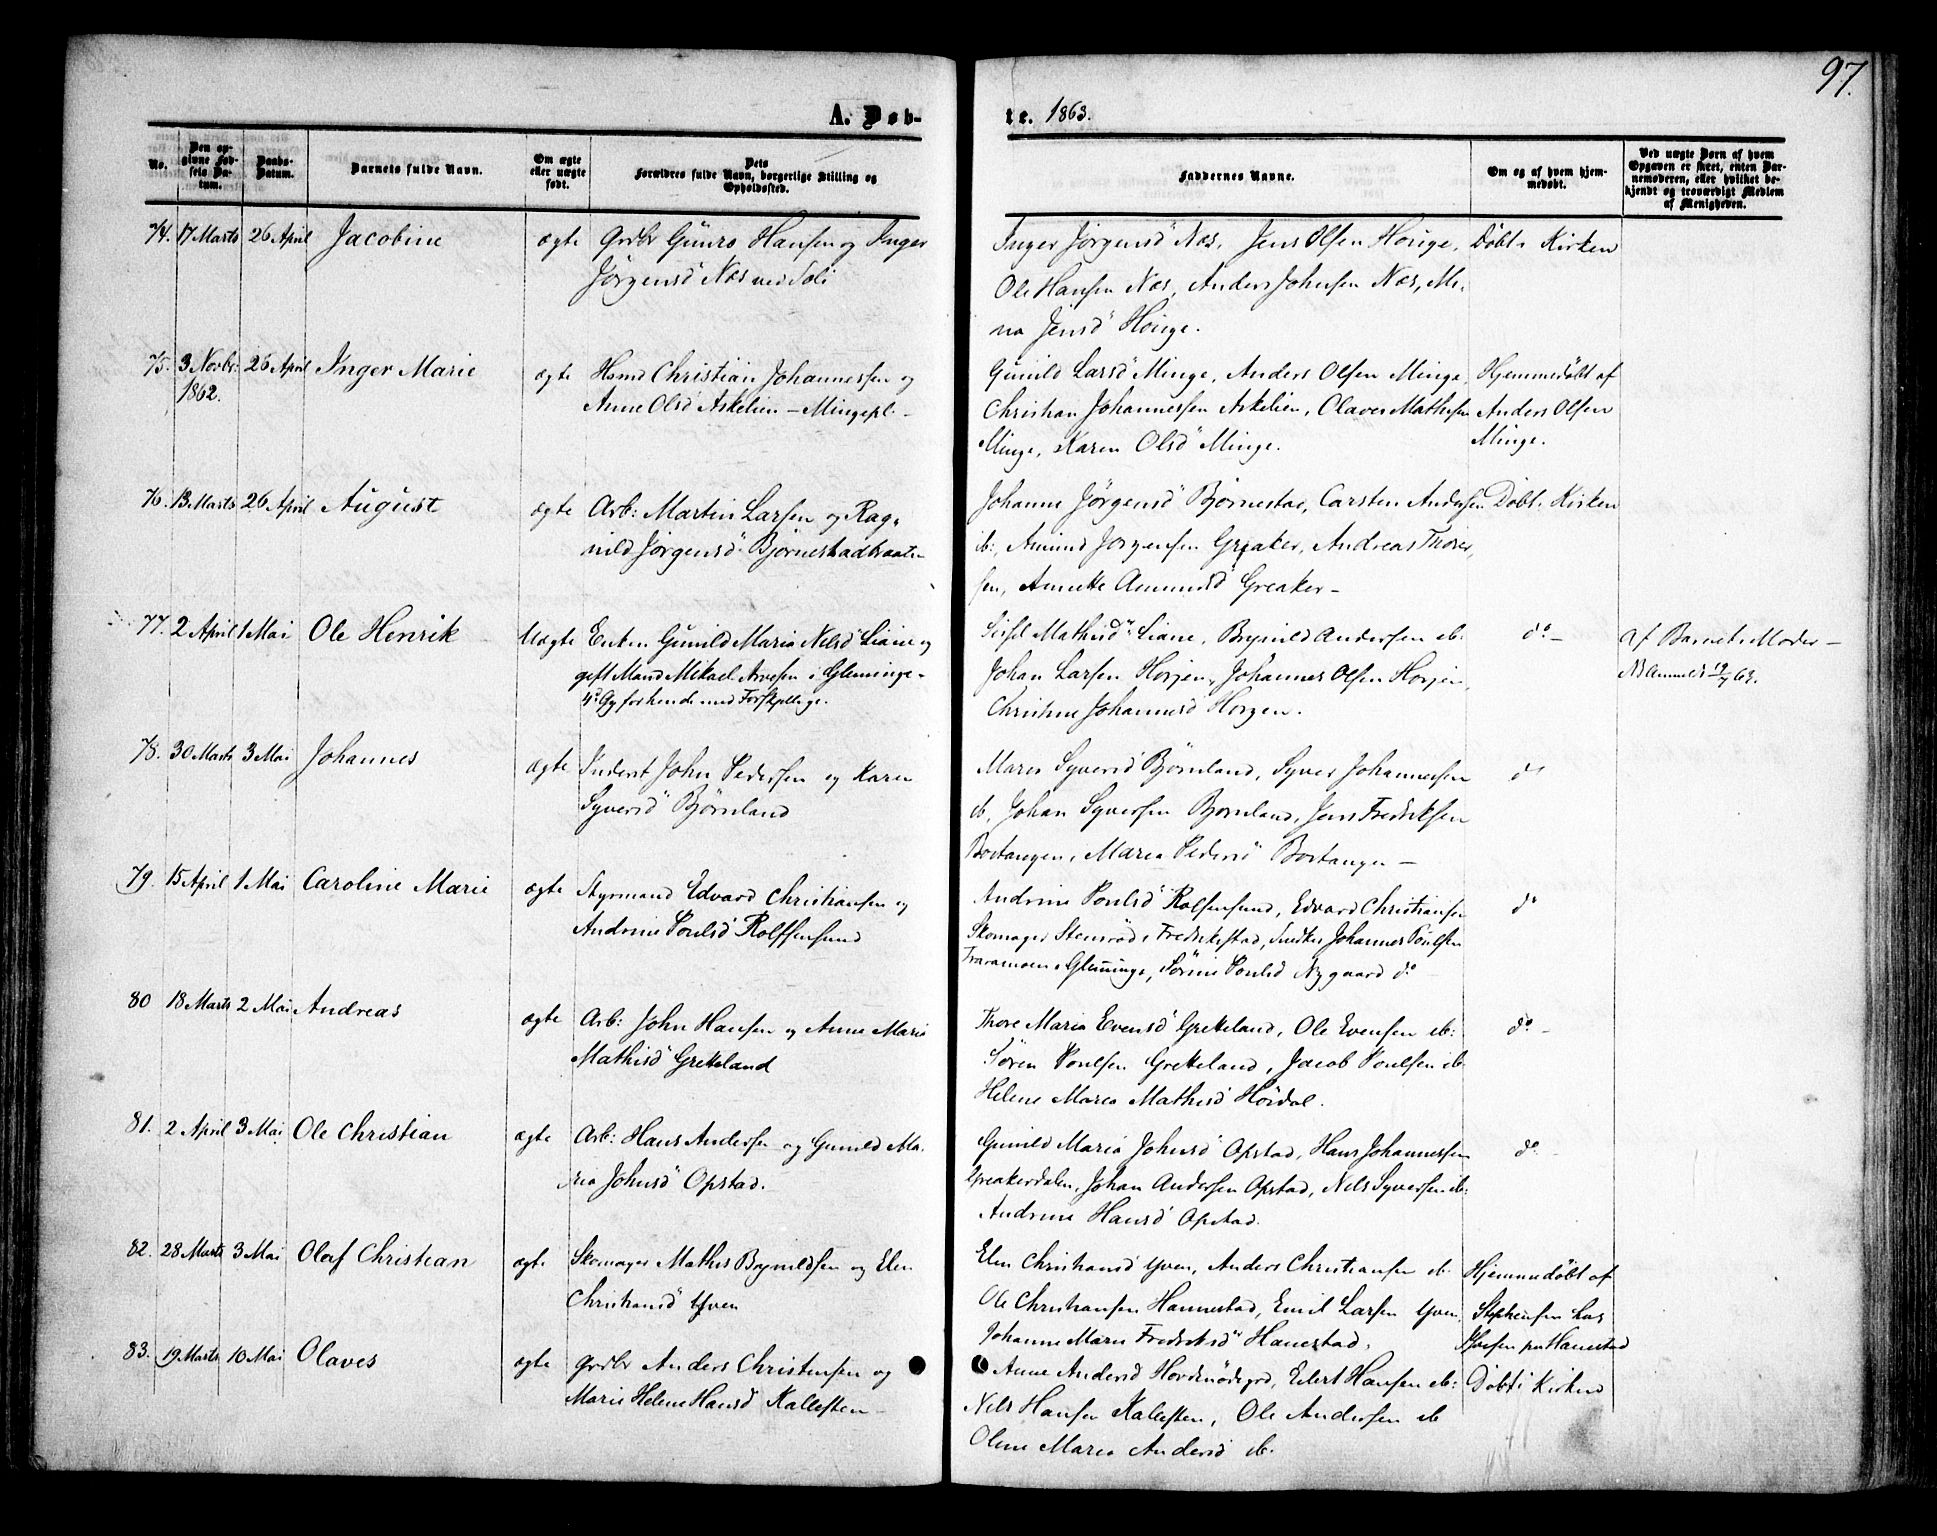 97.
A. Døb-
te. 1863.
No.
Den op-
givne Fød-
sels Da-
tum.
Daabs-
Datum.
Barnets fulde Navn.
Om ægte
eller uægte
født.
Dets
Forældres fulde Navn, borgerlige Stilling og
Opholdssted.
Faddernes Navne.
Om og af hvem hjem-
medøbt.
Ved uægte Børn af hvem
Opgaven er skeet, enten Bar-
nemoderen, eller hvilket be-
kjendt og troværdigt Medlem
af Menigheden.
74. 17 Marts 26 April Jacobine ægte Grdbr Gunro Hansen og Inger
Jørgensd Næs ved Soli
Inger Jørgensd Næs, Jens Olsen Houge, Døbt i Kirken
Ole Hansen Næs, Anders Johnsen Næs, Ma-
na Jensd Houge.
75. 3 Novbr: 26 April Inger Marie ægte Hsmd Christian Johannessen og
1862.
Anne Olsd Askelien - Mingepl: -
Gunild Larsd Minge, Anders Olsen Minge, Hjemmedøbt af
Christian Johannessen Askelien, Olaves Mathisen Anders Olsen
Minge, Karen Olsd Minge. Minge.
76. 13 Marts 26 April August ægte Arb: Martin Larsen og Rag-
nild Jørgensd Bjørnestadbraaten
Johanne Jørgensd Bjørnestad, Carsten Andersen Døbt i Kirken
ib:, Amund Jørgensen Greaker, Andreas Thores-
sen, Annette Amundsd Greaker -
77. 2 April 1 Mai Ole Henrik Uægte Enken Gunild Maria Nilsd Liane og
gift Mand Mikael Arvesen i Glemminge -
4d Gg for hende med Forskjellige.
Mathisd Liane, Brynild Andersen ib: do - af Barnets Moder -
Johan Larsen Horgen, Johannes Olsen Horgen,
Christine Johannesd Horgen.
78. 30 Marts 3 Mai Johannes ægte Inderst John Pedersen og Karen
Syversd Bjørnland
Maren Syversd Bjørnland, Syver Johannessen do
ib, Johan Syversen Bjørnland, Jens Fredriksen
Bostangen, Maria Pedersd Bostangen -
79. 15 April 1 Mai Caroline Marie ægte Styrmand Edvard Christiansen og
Andrine Poulsd Rolfsøsund
Andrine Poulsd Rolfsøsund, Edvard Christiansen do
Skomager Stenrød i Fredrikstad, Snedker Johannes Poulsen
Traramoen i Glemminge, Sørine Poulsd Nygaard do -
80 18 Marts 2 Mai Andreas ægte Arb: John Hansen og Anne Maria
Mathisd Grekeland
Thore Maria Evensd Grekeland, Ole Evensen ib: do -
Søren Poulsen Grekeland, Jacob Poulsen ib.
Helene Maria Mathisd Hørdal.
81. 2 April 3 Mai Ole Christian ægte Arb: Hans Andersen og Gunild Ma-
ria Johnsd Opstad.
Gunild Maria Johnsd Opstad, Hans Johannessen do -
Greakerdalen, Johan Andersen Opstad, Nils Syversen ib:
Andrine Hansd Opstad.
82. 28 Marts 3 Mai Olaf Christian ægte Skomager Mathis Brynildsen og Elen
Christiansd Yven
Elen Christiansd Yven, Anders Christiansen ib. Hjemmedøbt af
Ole Christiansen Hannestad, Emil Larsen Yven, Stephensen hos
Johanne Marie Fredriksd Hanestad. Hanestad
83. 19 Marts 10 Mai Olaves ægte Grdbr Anders Christensen og
Marie Helene Hansd Kallesten -
Anne Andersd Eilert Hansen ib: Døbt i Kirken
Nils Hansen Kallesten, Ole Andersen ib
Oline Maria Andersd ib.